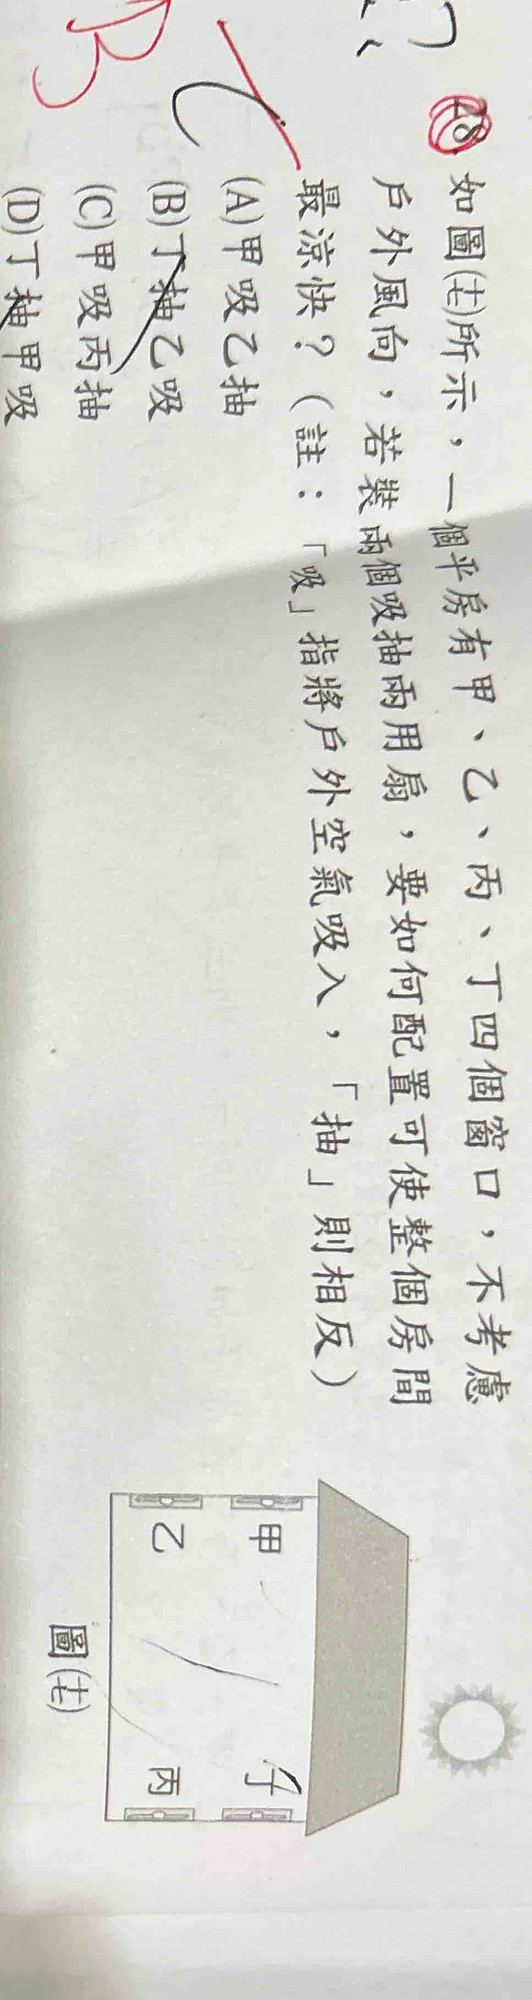 28. 如圖(十七)所示，一個平房有甲、乙、丙、丁四個窗口，不考慮
戶外風向，若裝兩個吸抽兩用扇，要如何配置可使整個房間
最涼快？（註：「吸」指將戶外空氣吸入，「抽」則相反）
(A)甲吸乙抽
(B)丁抽乙吸
(C)甲吸丙抽
(D)丁抽甲吸
C
B
甲
丁
乙
丙
圖(十七)